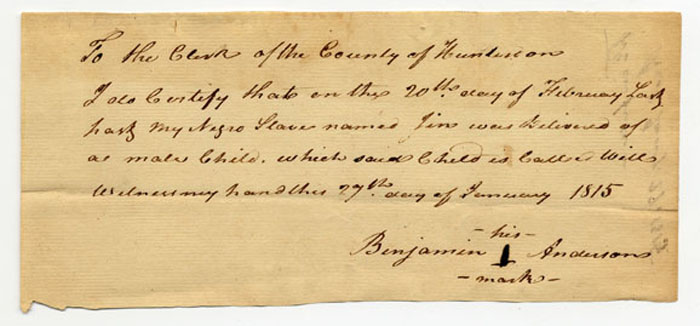 To the Clerk of the County of Hunterdon
I do Certify that on the 20th day of February Last
past My Negro Slave named Jin was Delivered of
a male Child. which said Child is Called Will
Witness my hand this 27th day of January 1815
his
Benjamin Anderson
mark